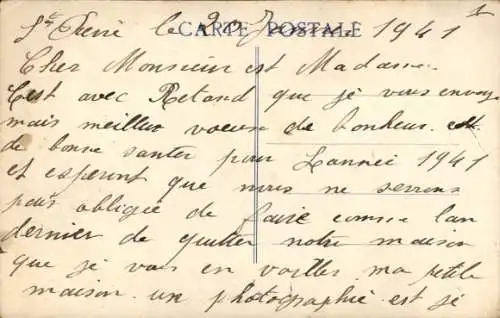 CARTE POSTALE
1
St Pierre le 20 Janvier 1941
Cher Monsieur est Madame
C'est avec Retard que je vous envoye
mais meilleur voeux de bonheur est
de bonne santer pour Lannee 1941
et esperent que nous ne serrons
pais obligée de faire comme lan
dernier de quitter notre maison
que je vais en voiller ma petite
maison un photographié est je